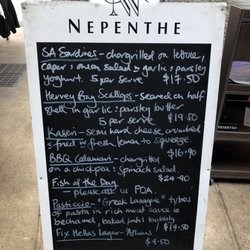 NEPENTHE
SA Sardines - chargrilled on lettuce,
caper & onion salad & garlic & parsley
yoghurt. 5 per serve $17.50
Hervey Bay Scallops - seared on half
shell in garlic & parsley butter
5 per serve $19
Kaseri - semi hard cheese crumbed
& fried w fresh lemon to squeeze.
$16.90
BBQ Calamari - chargrilled
on a chickpea & spinach salad.
$24.90
Fish of the Day
- please ask us POA.
Pasticcio - "Greek Lasagne" tubes
of pasta in rich meat sauce w
bechamel, baked until bubbly
$19.50
Fix Hellas Lager - Athens
$9.50